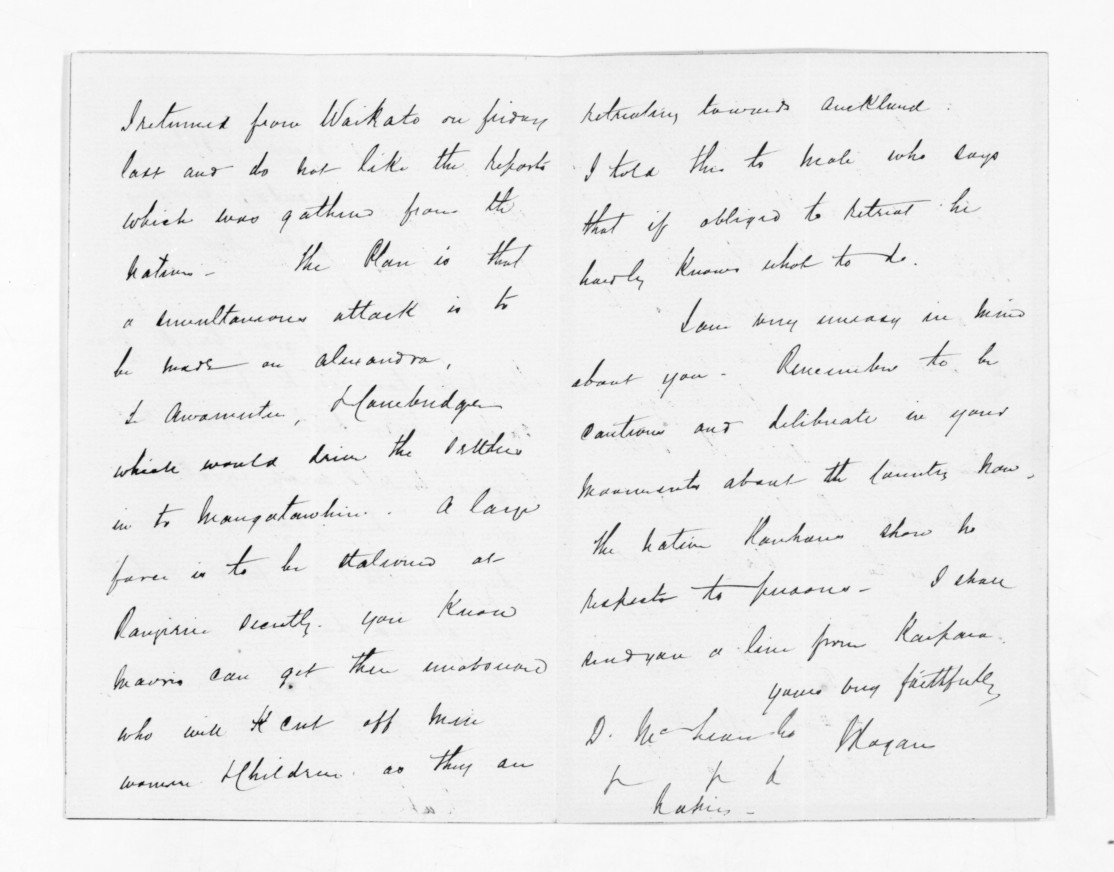 I returned from Waikato on friday
last and do not like the reports
which was gathered from the
natives - the Plan is that
a simultaneous attack is to
be made on alexandra,
& awamutu, Hamebridge
which would drive the Settlers
in to Mangatawhiri. A large
force is to be stationed at
Rangiriri secretly. you know
maoris can get there unobserved
who will cut off men
women & Children as they are
retreating towards auckland.
I told this to who says
that if obliged to retreat he
hardly knows what to do.
I am very uneasy in mind
about you - Remember to be
cautious and deliberate in your
movements about the Country now.
the native Hauhaus show no
respects to persons - I shall
send you a line from Kaipara.
yours very faithfully
D. McLean Rogan
Napier -